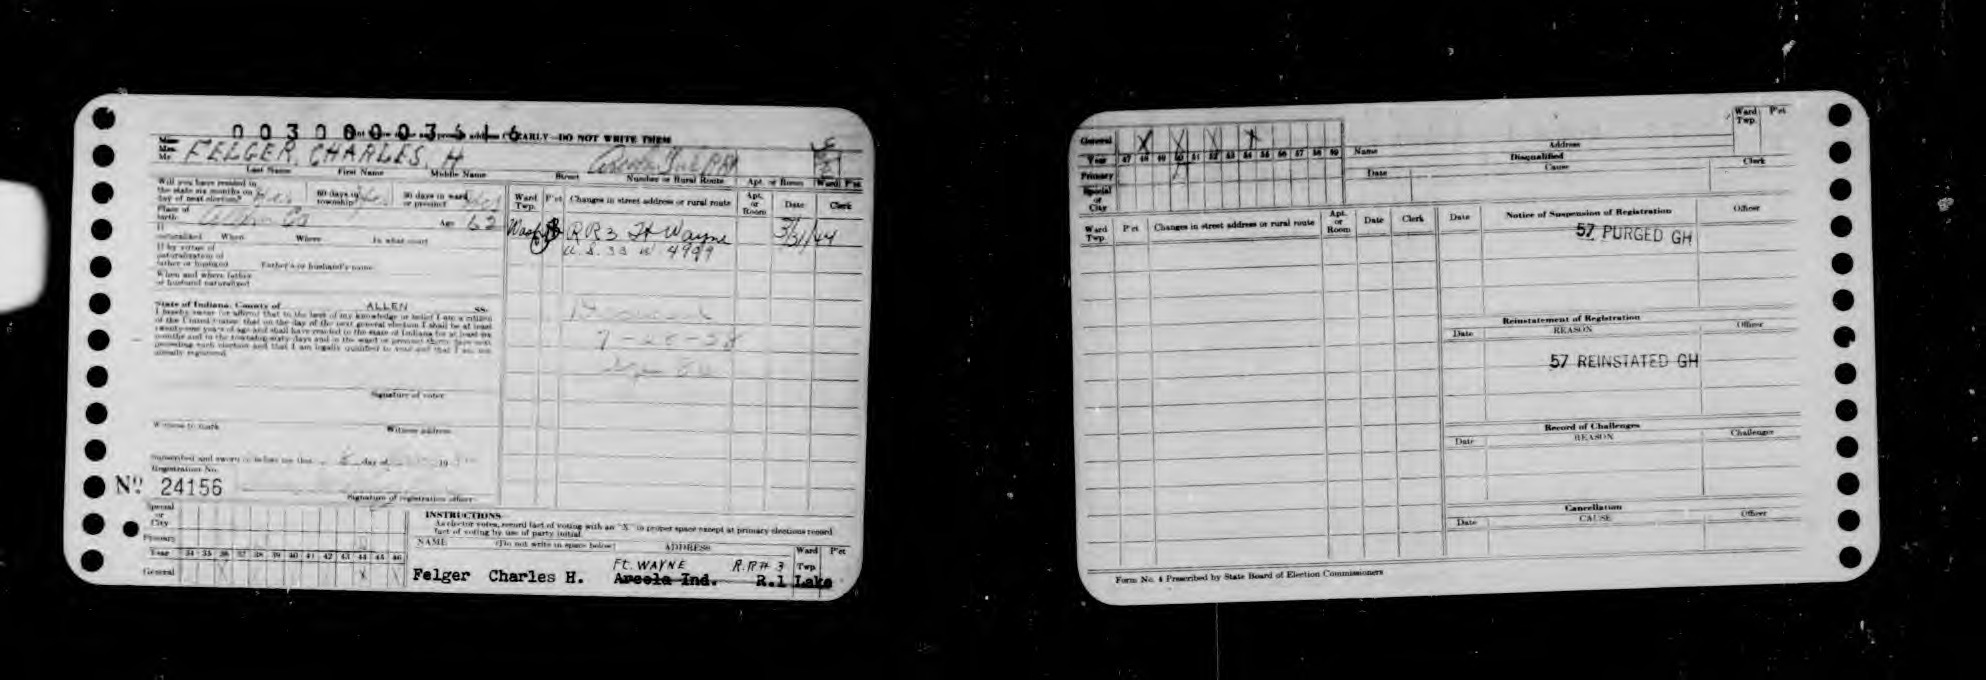 0030000351 6
CLEARLY—DO NOT WRITE THEM
Miss
Mrs.
Mr. FELGER, CHARLES, H
Last Name First Name Middle Name Street Number or Rural Route Apt. or Room Ward P'ct
Will you have resided in
the state six months on
day of next election? Yes 60 days in
township Yes 30 days in ward
or precinct Yes
Place of
birth Allen Co Age 62
If
naturalized When Where In what court
If by virtue of
naturalization of
father or husband Father's or husband's name
When and where father
or husband naturalized
State of Indiana, County of ALLEN SS.
I hereby swear (or affirm) that to the best of my knowledge or belief I am a citizen
of the United States; that on the day of the next general election I shall be at least
twenty-one years of age and shall have resided in the state of Indiana for at least six
months and in the township sixty days and in the ward or precinct thirty days next
preceding such election and that I am legally qualified to vote and that I am not
already registered.
Signature of voter
Witness to mark Witness address
Subscribed and sworn to before me this 5 day of 19
Registration No.
Nº 24156
Signature of registration officer
Ward
Twp. P'ct Changes in street address or rural route Apt.
or
Room Date Clerk
Wash B RR3 Ft Wayne 3/31/44
U.S. 33 W 4999
Deceased
7-28-58
Age 80
Special
or
City
Primary
Year 34 35 36 37 38 39 40 41 42 43 44 45 46
General X X X
INSTRUCTIONS
As elector votes, record fact of voting with an "X" in proper space except at primary elections record
fact of voting by use of party initial.
NAME (Do not write in space below) ADDRESS Ward
Twp P'ct
Ft. WAYNE R.R# 3
Felger Charles H. Arcola Ind. R.1 Lake
General X X X X
Year 47 48 49 50 51 52 53 54 55 56 57 58 59
Primary
Special
or
City
Name Address Ward
Twp. P'ct
Disqualified
Date Cause Clerk
Ward
Twp. P'ct Changes in street address or rural route Apt.
or
Room Date Clerk
Date Notice of Suspension of Registration Officer
57 PURGED GH
Reinstatement of Registration
Date REASON Officer
57 REINSTATED GH
Record of Challenges
Date REASON Challenger
Cancellation
Date CAUSE Officer
Form No. 4 Prescribed by State Board of Election Commissioners